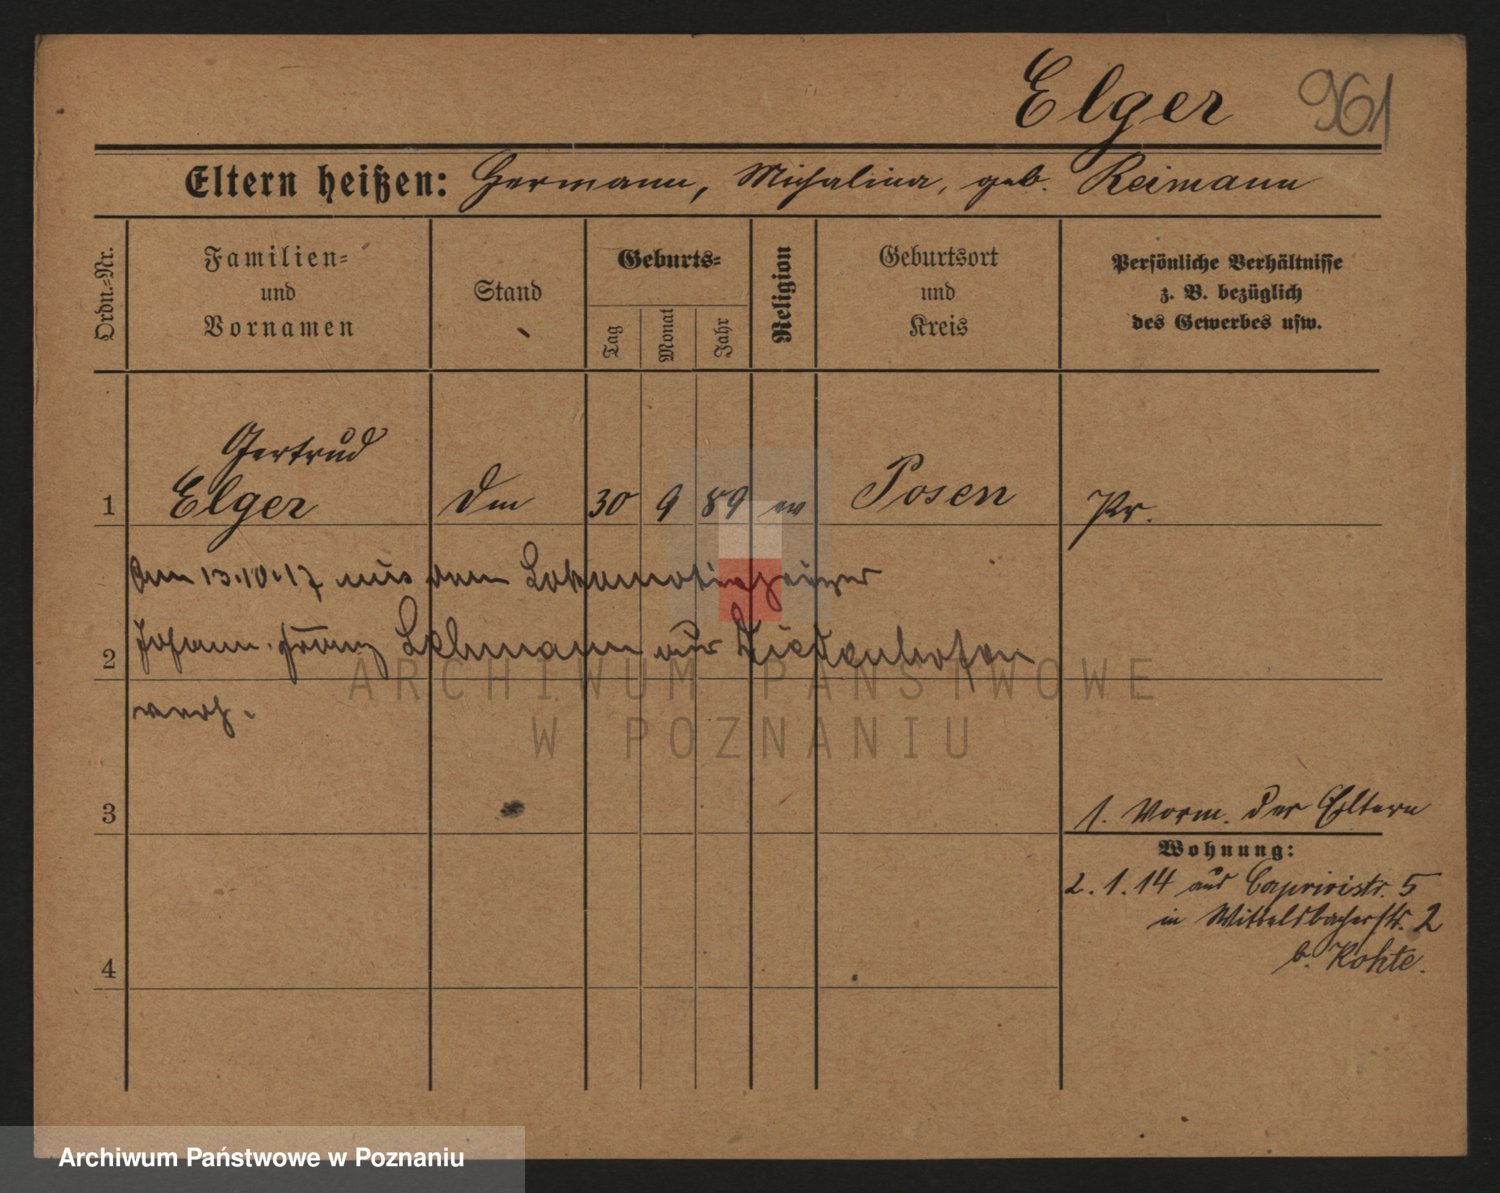 Elger 961
Eltern heißen: Hermann, Michalina, geb. Reimann
Ordn.-Nr.
Familien-
und
Vornamen
Stand
Geburts-
Tag
Monat
Jahr
Religion
Geburtsort
und
Kreis
Persönliche Verhältnisse
z. B. bezüglich
des Gewerbes usw.
Gertrud
1 Elger 30 9 89 ev Posen Pr.
Am 13.10.17 mit dem Lokomotivheizer
2 Johann Franz Lehmann aus
verh.
3
1. Vorm. der Eltern
Wohnung:
2.1.14 aus Caprivistr. 5
in Wittelsbacherstr. 2
b. Kohte.
4
ARCHIWUM PAŃSTWOWE
W POZNANIU
Archiwum Państwowe w Poznaniu